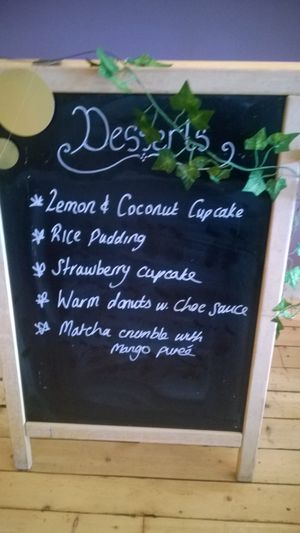 Desserts
Lemon & Coconut Cupcake
Rice Pudding
Strawberry cupcake
Warm donuts w. choc sauce
Matcha crumble with
Mango pureé